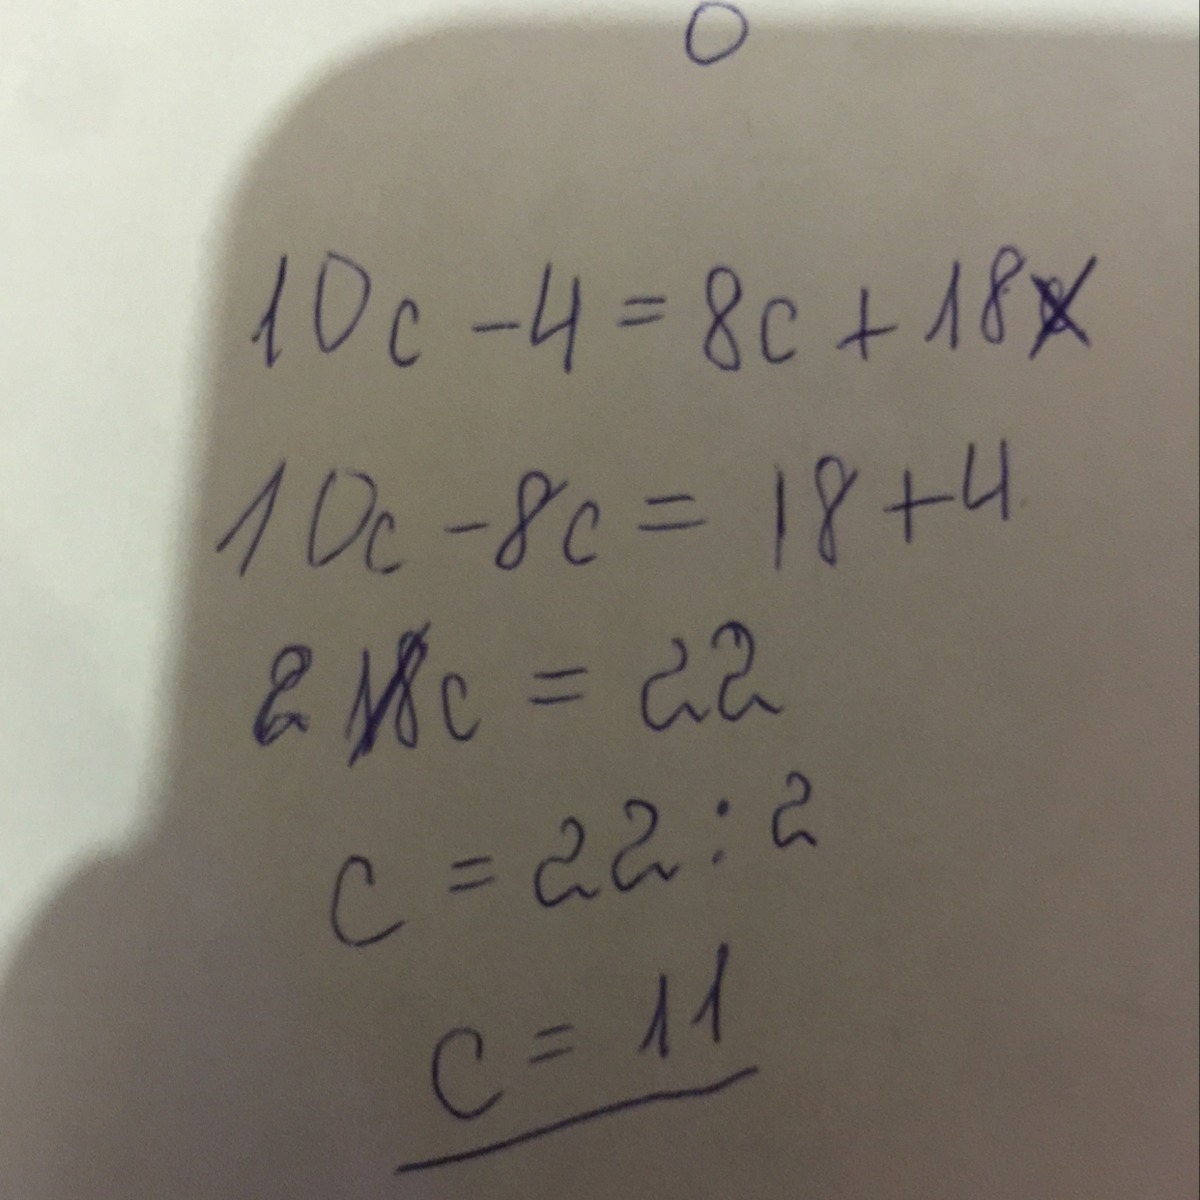 0
10c - 4 = 8c + 18
10c - 8c = 18 + 4
2c = 22
c = 22 : 2
c = 11